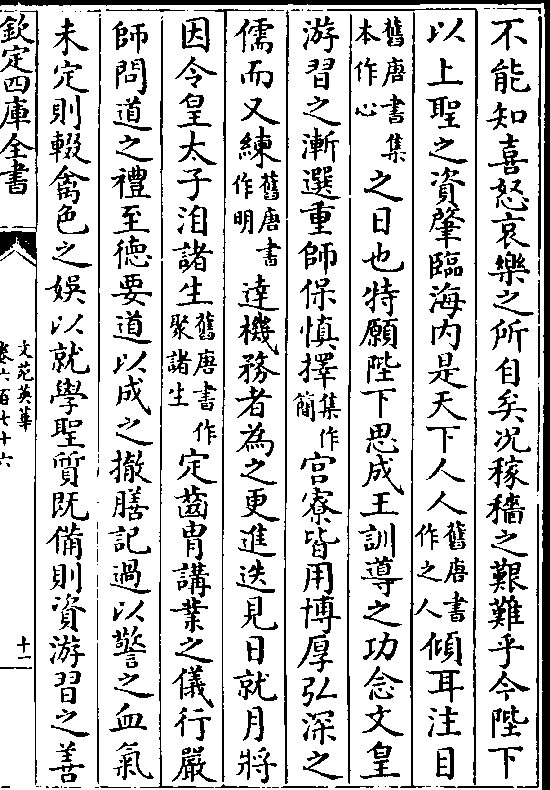 不能知喜怒哀樂之所自矣况稼穡之艱難乎今陛下
以上聖之資肇臨海内是天下人人舊唐書作之人傾耳注目
舊唐書集本作心之日也特願陛下思成王訓導之功念文皇
游習之漸選重師保慎擇集作簡宫寮皆用博厚弘深之
儒而又練舊唐書作明達機務者為之更進迭見日就月將
因令皇太子洎諸生舊唐書作聚諸生定齒胄講業之儀行嚴
師問道之禮至徳要道以成之撤膳記過以警之血氣
未定則輟禽色之娛以就學聖質既備則資游習之善
欽定四庫全書
文苑英華
卷六百七十六
十一